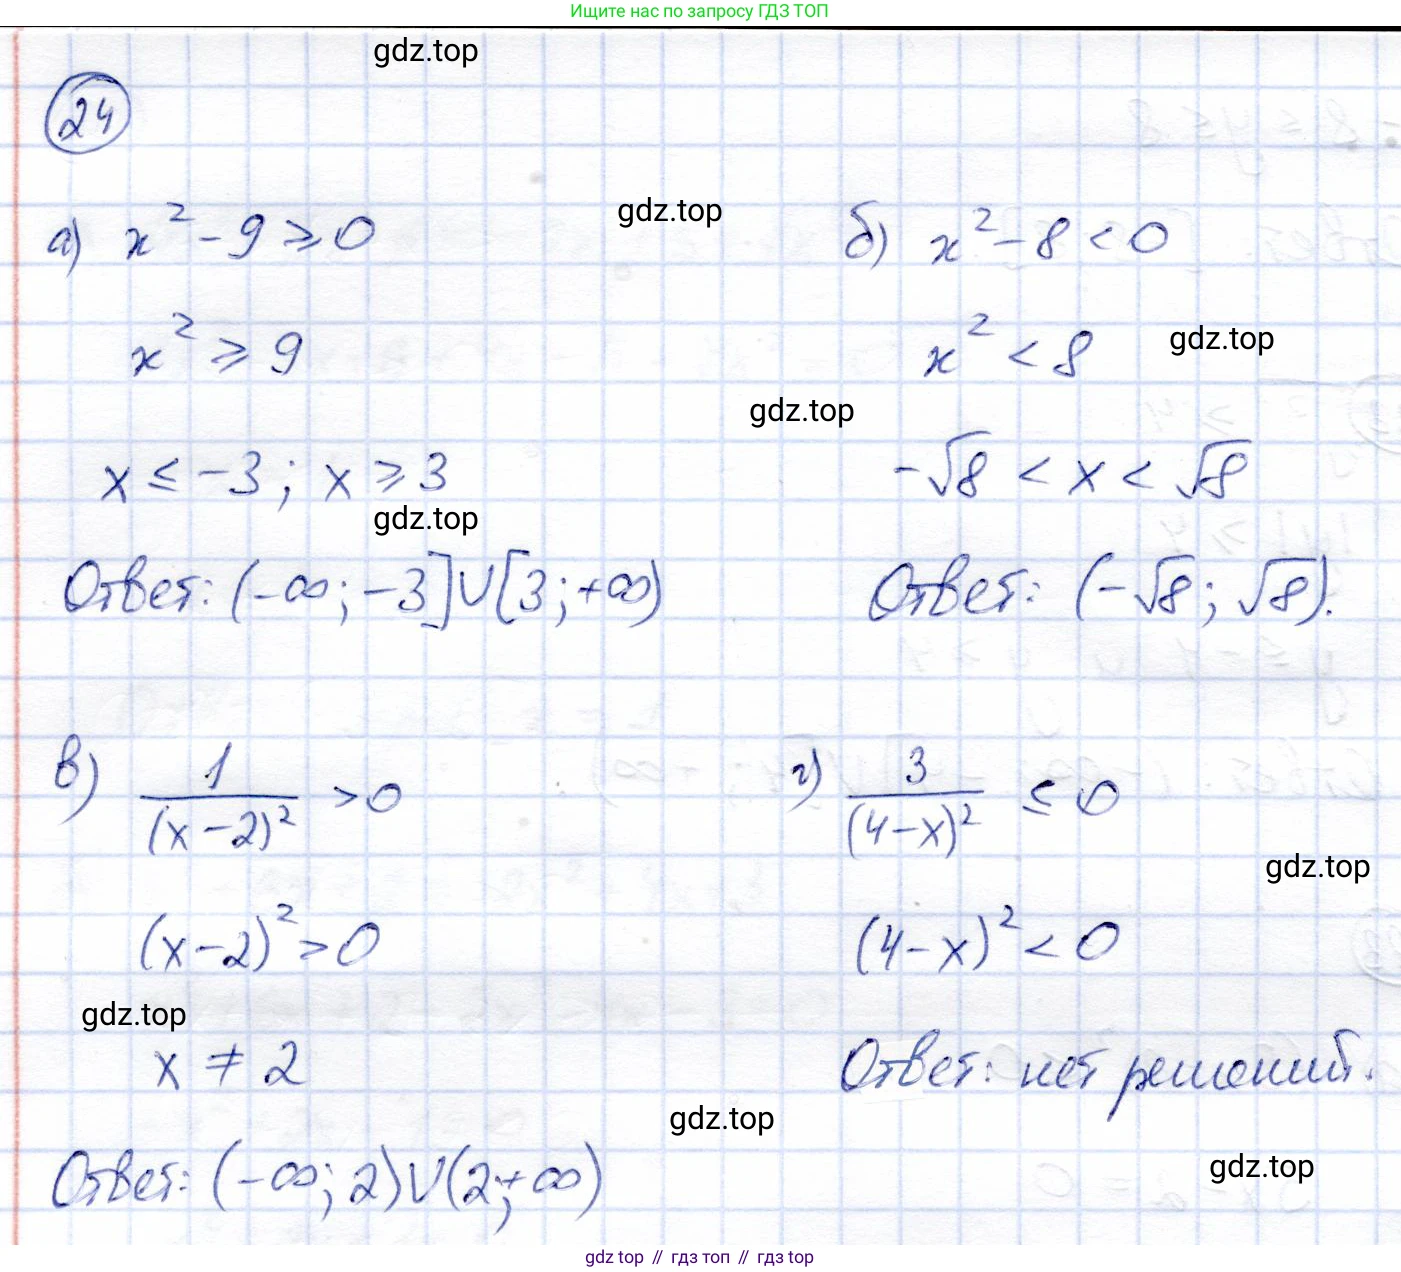 Ищите нас по запросу ГДЗ ТОП
gdz.top
24
а) x² - 9 ⩾ 0
gdz.top
б) x² - 8 < 0
x² ⩾ 9
x² < 8
gdz.top
gdz.top
x ≤ -3; x ⩾ 3
-√8 < x < √8
gdz.top
Ответ: (-∞; -3]∪[3; +∞)
Ответ: (-√8; √8).
в) 1/(x-2)² > 0
г) 3/(4-x)² ≤ 0
gdz.top
(x-2)² > 0
(4-x)² < 0
gdz.top
x ≠ 2
Ответ: нет решений.
gdz.top
Ответ: (-∞; 2)∪(2; +∞)
gdz.top
gdz top // гдз топ // гдз top